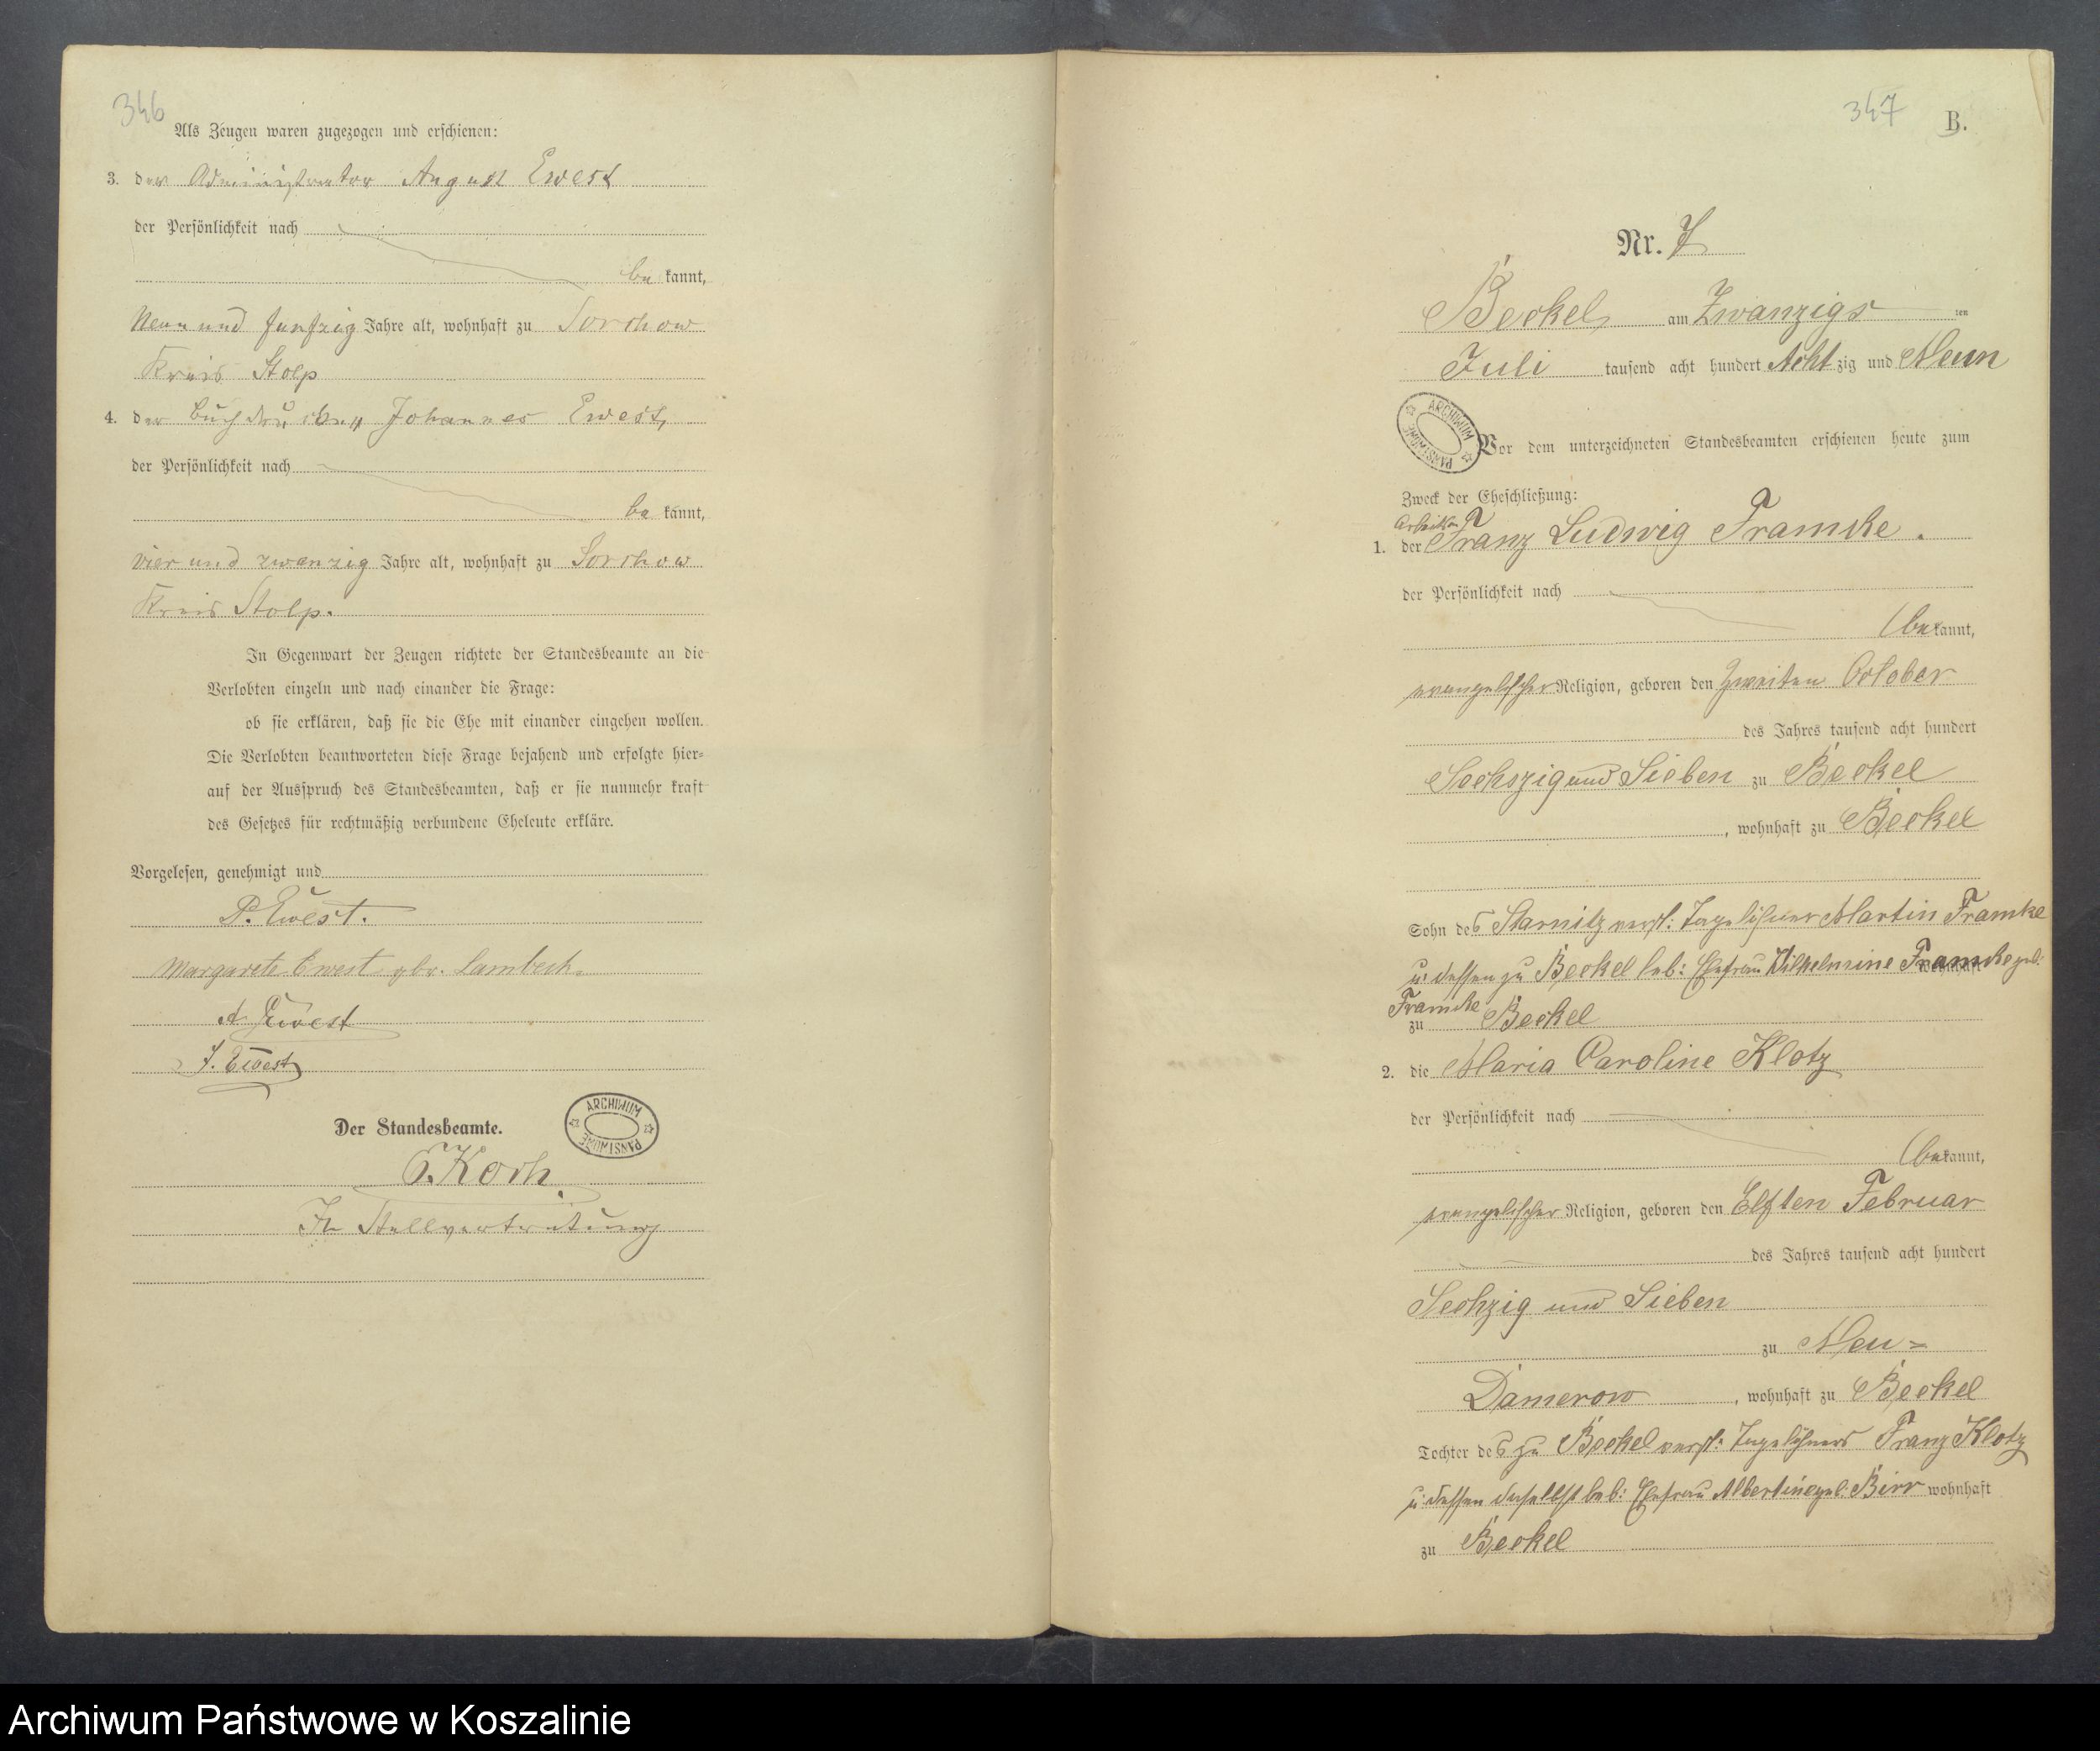 346
Als Zeugen waren zugezogen und erschienen:
3. der Administrator August Ewest
der Persönlichkeit nach
be kannt,
Neun und funfzig Jahre alt, wohnhaft zu Sorchow
Kreis Stolp
4. der Buchdrucker Johannes Ewest,
der Persönlichkeit nach
be kannt,
vier und zwanzig Jahre alt, wohnhaft zu Sorchow
Kreis Stolp.
In Gegenwart der Zeugen richtete der Standesbeamte an die
Verlobten einzeln und nach einander die Frage:
ob sie erklären, daß sie die Ehe mit einander eingehen wollen.
Die Verlobten beantworteten diese Frage bejahend und erfolgte hier-
auf der Ausspruch des Standesbeamten, daß er sie nunmehr kraft
des Gesetzes für rechtmäßig verbundene Eheleute erkläre.
Vorgelesen, genehmigt und
P. Ewest.
Margarete Ewest gbr. Lambeck.
A. Ewest
J. Ewest
Der Standesbeamte.
ARCHIWUM PAŃSTWOWE
Koch.
In Stellvertretung
347
B.
Nr. 7
Beckel, am Zwanzigs ten
Juli tausend acht hundert Acht zig und Neun
ARCHIWUM PAŃSTWOWE
Vor dem unterzeichneten Standesbeamten erschienen heute zum
Zweck der Eheschließung:
Arbeiter
1. der Franz Ludwig Framcke.
der Persönlichkeit nach
be kannt,
evangelischer Religion, geboren den Zweiten October
des Jahres tausend acht hundert
Sechszig und Sieben zu Beckel
, wohnhaft zu Beckel
Sohn des Starnitz verst: Tagelöhner Martin Framke
u: dessen zu Beckel leb: Ehefrau Wilhelmine Framcke geb: wohnhaft
Framcke
zu Beckel
2. die Maria Caroline Klotz
der Persönlichkeit nach
be kannt,
evangelischer Religion, geboren den Elften Februar
des Jahres tausend acht hundert
Sechzig und Sieben
zu Neu=
Damerow, wohnhaft zu Beckel
Tochter des zu Beckel verst: Tagelöhners Franz Klotz
u: dessen daselbst leb: Ehefrau Albertine geb: Birr wohnhaft
zu Beckel
Archiwum Państwowe w Koszalinie